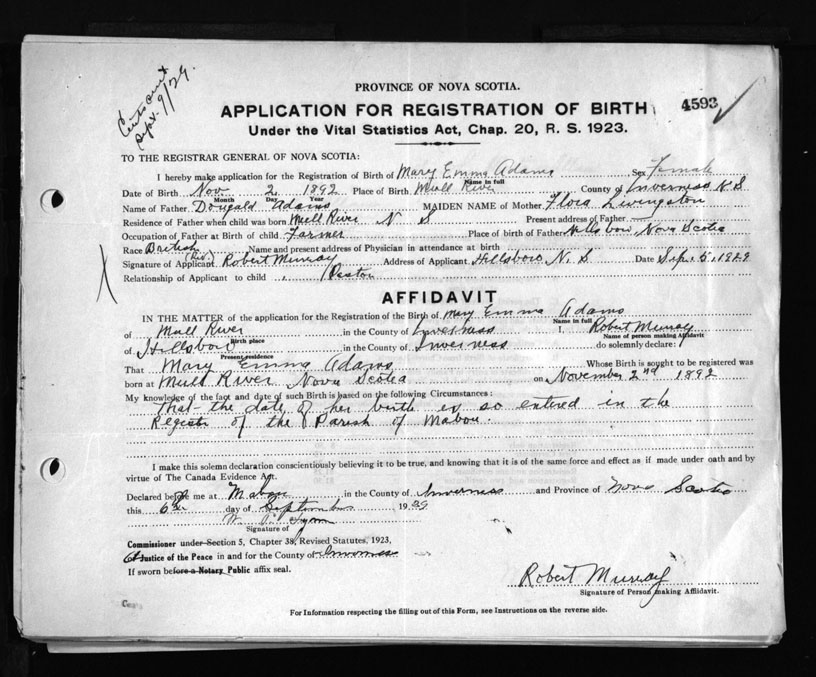 Cert sent
Sept. 9/29.
PROVINCE OF NOVA SCOTIA.
APPLICATION FOR REGISTRATION OF BIRTH 4593
Under the Vital Statistics Act, Chap. 20, R. S. 1923.
TO THE REGISTRAR GENERAL OF NOVA SCOTIA:
I hereby make application for the Registration of Birth of Mary Emma Adams Sex Female
Name in full
Date of Birth Nov 2 1892 Place of Birth Mull River County of Inverness N S
Month Day Year
Name of Father Dougald Adams MAIDEN NAME of Mother Flora Livingston
Residence of Father when child was born Mull River N S Present address of Father
Occupation of Father at Birth of child Farmer Place of birth of Father Hillsboro, Nova Scotia
Race British Name and present address of Physician in attendance at birth
Signature of Applicant (Rev.) Robert Murray Address of Applicant Hillsboro, N. S Date Sep. 5, 1929
Relationship of Applicant to child Pastor
AFFIDAVIT
IN THE MATTER of the application for the Registration of the Birth of Mary Emma Adams
Name in full
of Mull River in the County of Inverness I, Robert Murray
Birth place Name of person making Affidavit
of Hillsboro in the County of Inverness do solemnly declare:
Present residence
That Mary Emma Adams Whose Birth is sought to be registered was
born at Mull River Nova Scotia on November 2nd 1892
My knowledge of the fact and date of such Birth is based on the following Circumstances:
That the date of her birth is so entered in the
Register of the Parish of Mabou.
I make this solemn declaration conscientiously believing it to be true, and knowing that it is of the same force and effect as if made under oath and by
virtue of The Canada Evidence Act.
Declared before me at Mabou in the County of Inverness and Province of Nova Scotia
this 6th day of September 1929
Signature of
Commissioner under Section 5, Chapter 38, Revised Statutes, 1923,
Justice of the Peace in and for the County of Inverness
If sworn before a Notary Public affix seal.
Robert Murray
Signature of Person making Affidavit.
For Information respecting the filling out of this Form, see Instructions on the reverse side.